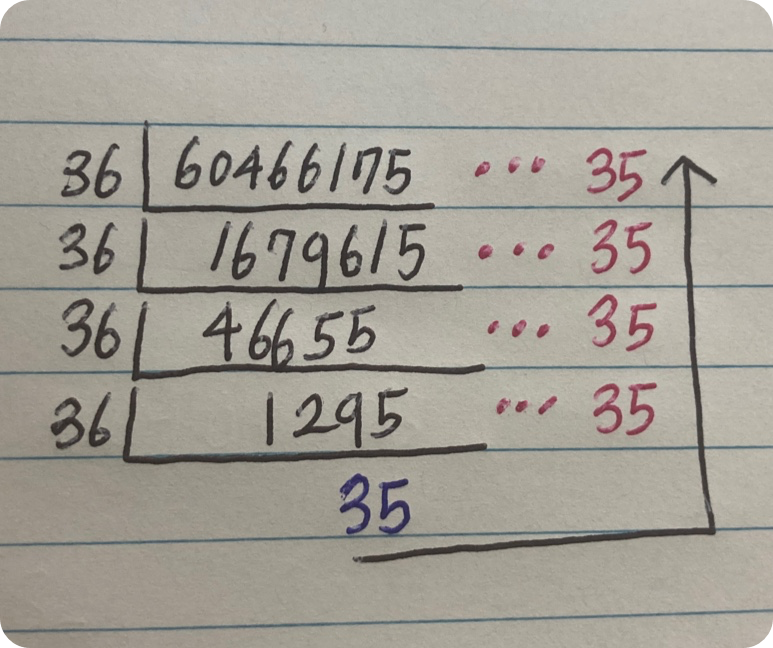 36 60466175 ... 35
36 1679615 ... 35
36 46655 ... 35
36 1295 ... 35
35